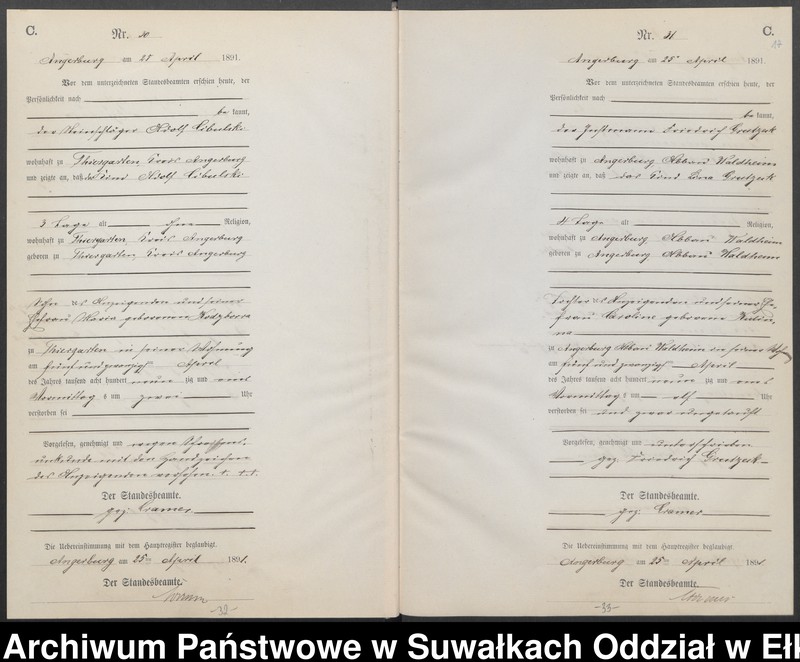 C.
Nr. 30
Angerburg am 25 April 1891.
Vor dem unterzeichneten Standesbeamten erschien heute, der
Persönlichkeit nach
be kannt,
der Steinschläger Adolf Cibulski
wohnhaft zu Thiergarten Kreis Angerburg
und zeigte an, daß das Kind Adolf Cibulski
3 Tage alt ohne Religion,
wohnhaft zu Thiergarten Kreis Angerburg
geboren zu Thiergarten Kreis Angerburg
Sohn des Anzeigenden und seiner
Ehefrau Maria geborenen
zu Thiergarten in seiner Wohnung
am fünf und zwanzigsten April
des Jahres tausend acht hundert neun zig und eins
Vormittag s um zwei Uhr
verstorben sei
Vorgelesen, genehmigt und wegen Schreibens-
unkunde mit den Handzeichen
des Anzeigenden versehen + + +
Der Standesbeamte.
gez. Cramer
Die Uebereinstimmung mit dem Hauptregister beglaubigt.
Angerburg am 25ten April 1891.
Der Standesbeamte.
Cramer
-32-
C.
17
Nr. 31
Angerburg am 25 April 1891.
Vor dem unterzeichneten Standesbeamten erschien heute, der
Persönlichkeit nach
be kannt,
der Instmann Friedrich
wohnhaft zu Angerburg Abbau Waldheim
und zeigte an, daß das Kind Lina
4 Tage alt Religion,
wohnhaft zu Angerburg Abbau Waldheim
geboren zu Angerburg Abbau Waldheim
Tochter des Anzeigenden und seiner Ehe-
frau Caroline geborene
zu Angerburg Abbau Waldheim in seiner
am fünf und zwanzigsten April
des Jahres tausend acht hundert neun zig und eins
Vormittag s um elf Uhr
verstorben sei und zwar ungetauft
Vorgelesen, genehmigt und unterschrieben
gez. Friedrich
Der Standesbeamte.
gez. Cramer
Die Uebereinstimmung mit dem Hauptregister beglaubigt.
Angerburg am 25ten April 1891.
Der Standesbeamte.
Cramer
-33-
Archiwum Państwowe w Suwałkach Oddział w Ełk